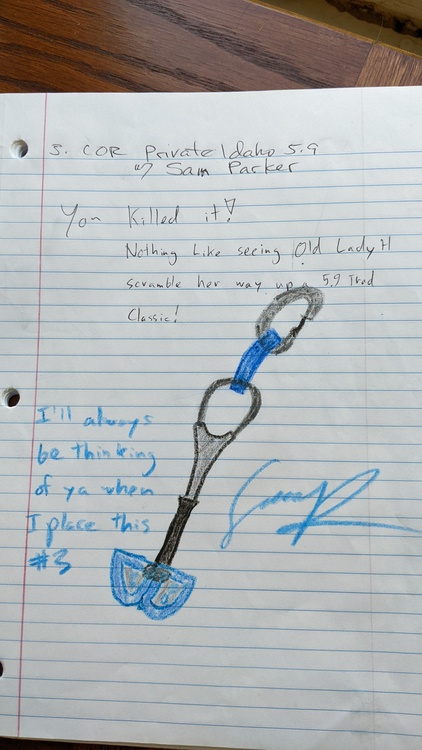 3. COR Private Idaho 5.9
w/ Sam Parker
You Killed it!
Nothing Like seeing Old Lady H
scramble her way up a 5.9 Trad
Classic!
I'll always
be thinking
of ya when
I place this
#3